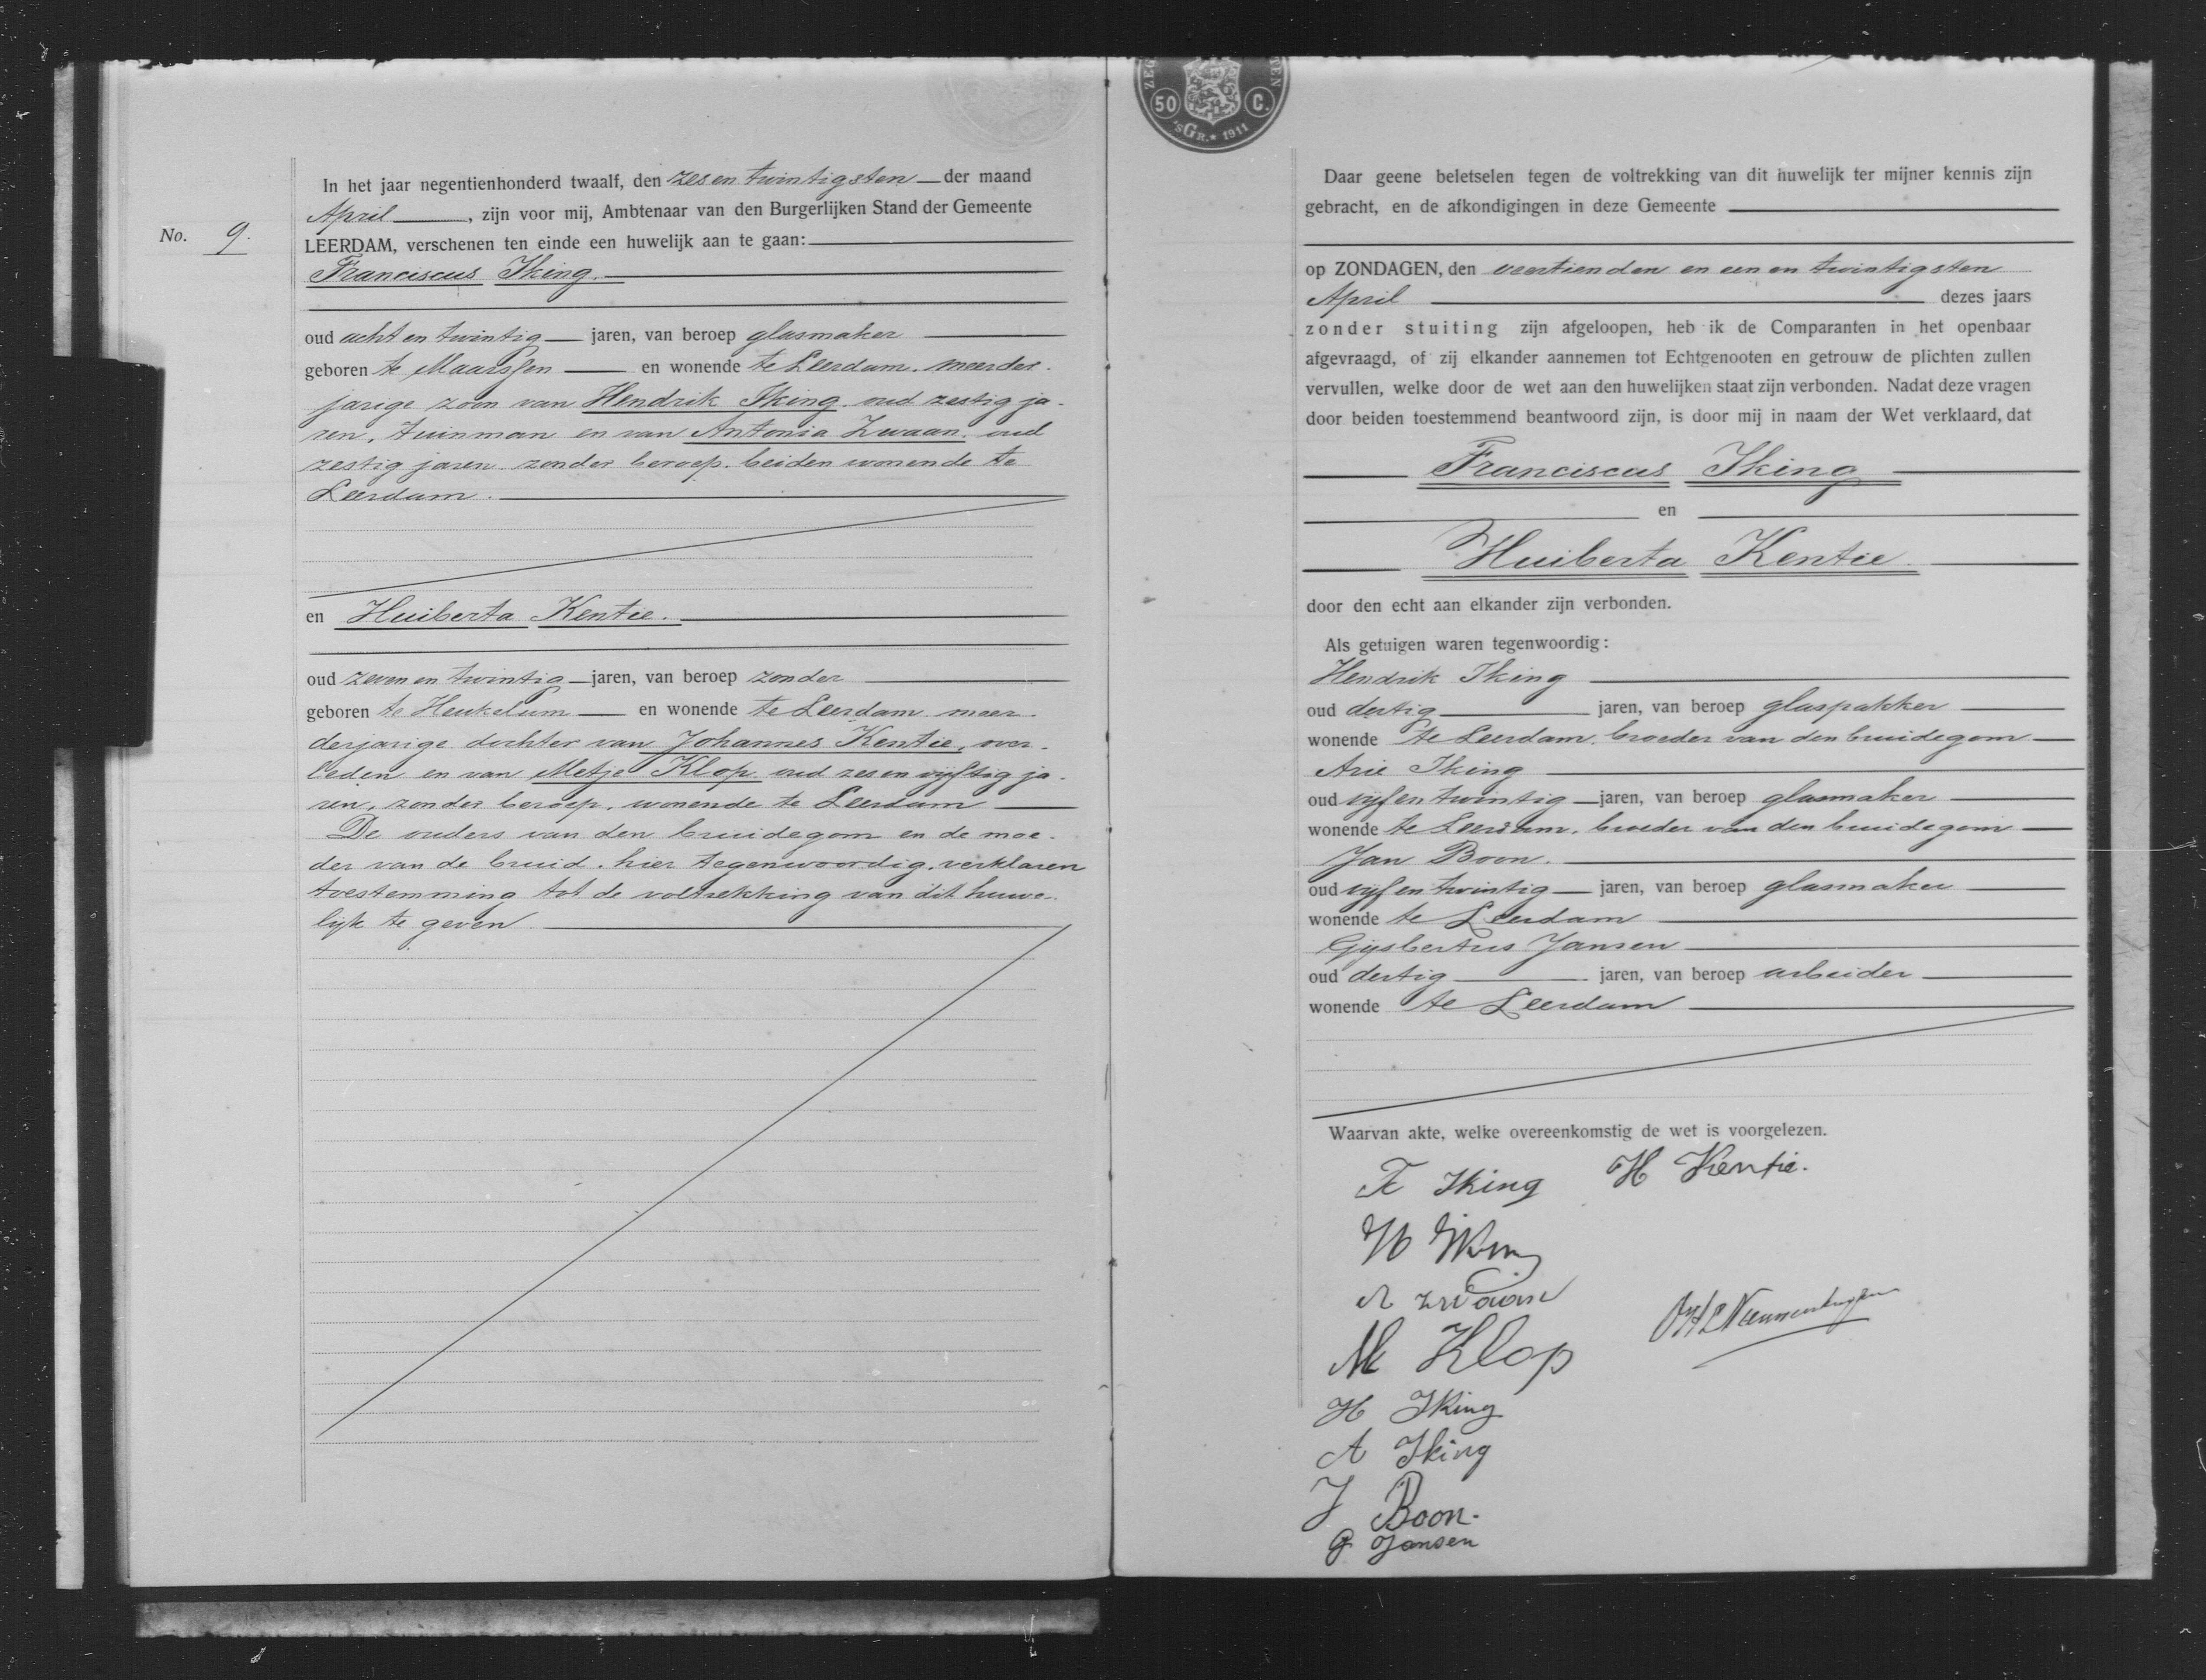 No. 9.
In het jaar negentienhonderd twaalf, den zes en twintigsten der maand
April, zijn voor mij, Ambtenaar van den Burgerlijken Stand der Gemeente
LEERDAM, verschenen ten einde een huwelijk aan te gaan:
Franciscus Iking.
oud acht en twintig jaren, van beroep glasmaker
geboren te Maarssen en wonende te Leerdam. meerder-
jarige zoon van Hendrik Iking, oud zestig ja-
ren, tuinman en van Antonia Zwaan, oud
zestig jaren zonder beroep, beiden wonende te
Leerdam.
en Huiberta Kentie.
oud zeven en twintig jaren, van beroep zonder
geboren te Heukelum en wonende te Leerdam meer-
derjarige dochter van Johannes Kentie, over-
leden en van Metje Klop oud zes en vijftig ja-
ren, zonder beroep, wonende te Leerdam
De ouders van den bruidegom en de moe-
der van de bruid, hier tegenwoordig, verklaren
toestemming tot de voltrekking van dit huwe-
lijk te geven
50 C.
'sGR.* 1911
Daar geene beletselen tegen de voltrekking van dit huwelijk ter mijner kennis zijn
gebracht, en de afkondigingen in deze Gemeente
op ZONDAGEN, den veertienden en een en twintigsten
April dezes jaars
zonder stuiting zijn afgeloopen, heb ik de Comparanten in het openbaar
afgevraagd, of zij elkander aannemen tot Echtgenooten en getrouw de plichten zullen
vervullen, welke door de wet aan den huwelijken staat zijn verbonden. Nadat deze vragen
door beiden toestemmend beantwoord zijn, is door mij in naam der Wet verklaard, dat
Franciscus Iking
en
Huiberta Kentie
door den echt aan elkander zijn verbonden.
Als getuigen waren tegenwoordig:
Hendrik Iking
oud dertig jaren, van beroep glaspakker
wonende te Leerdam, broeder van den bruidegom
Arie Iking
oud vijf en twintig jaren, van beroep glasmaker
wonende te Leerdam, broeder van den bruidegom
Jan Boon.
oud vijf en twintig jaren, van beroep glasmaker
wonende te Leerdam
Gijsbertus Jansen
oud dertig jaren, van beroep arbeider
wonende te Leerdam
Waarvan akte, welke overeenkomstig de wet is voorgelezen.
F Iking H Kentie.
H Iking
A Zwaan
M Klop
H Iking
A Iking
J Boon.
G Jansen